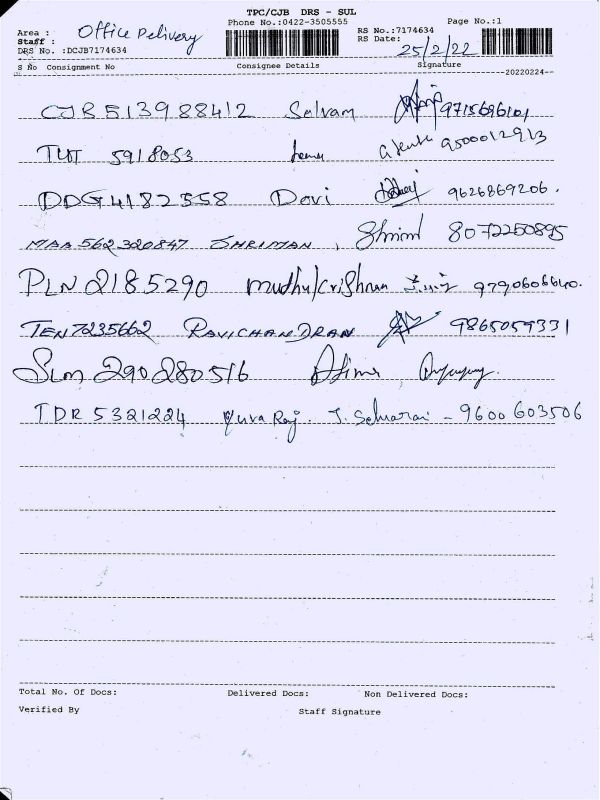 TPC/CJB DRS - SUL
Phone No.:0422-3505555 Page No.:1
Area : Office Delivery RS No.:7174634
Staff : RS Date: 25/2/22
DRS No. :DCJB7174634
S No Consignment No Consignee Details Signature
--20220224--
CJB513988412 Selvam 9715696101
TUT 5918053 9500012913
DDG4182558 Dovi 9626869206.
MAA 562320847 SHRIMAN, 8072250895
PLN 2185290 Muthu/crishnan 9790606640.
TEN7235662 RAVICHANDRAN 9865059331
SLM 290280516
TDR 5321224 Yuva Raj. J. Selvarai - 9600603506
Total No. Of Docs: Delivered Docs: Non Delivered Docs:
Verified By Staff Signature